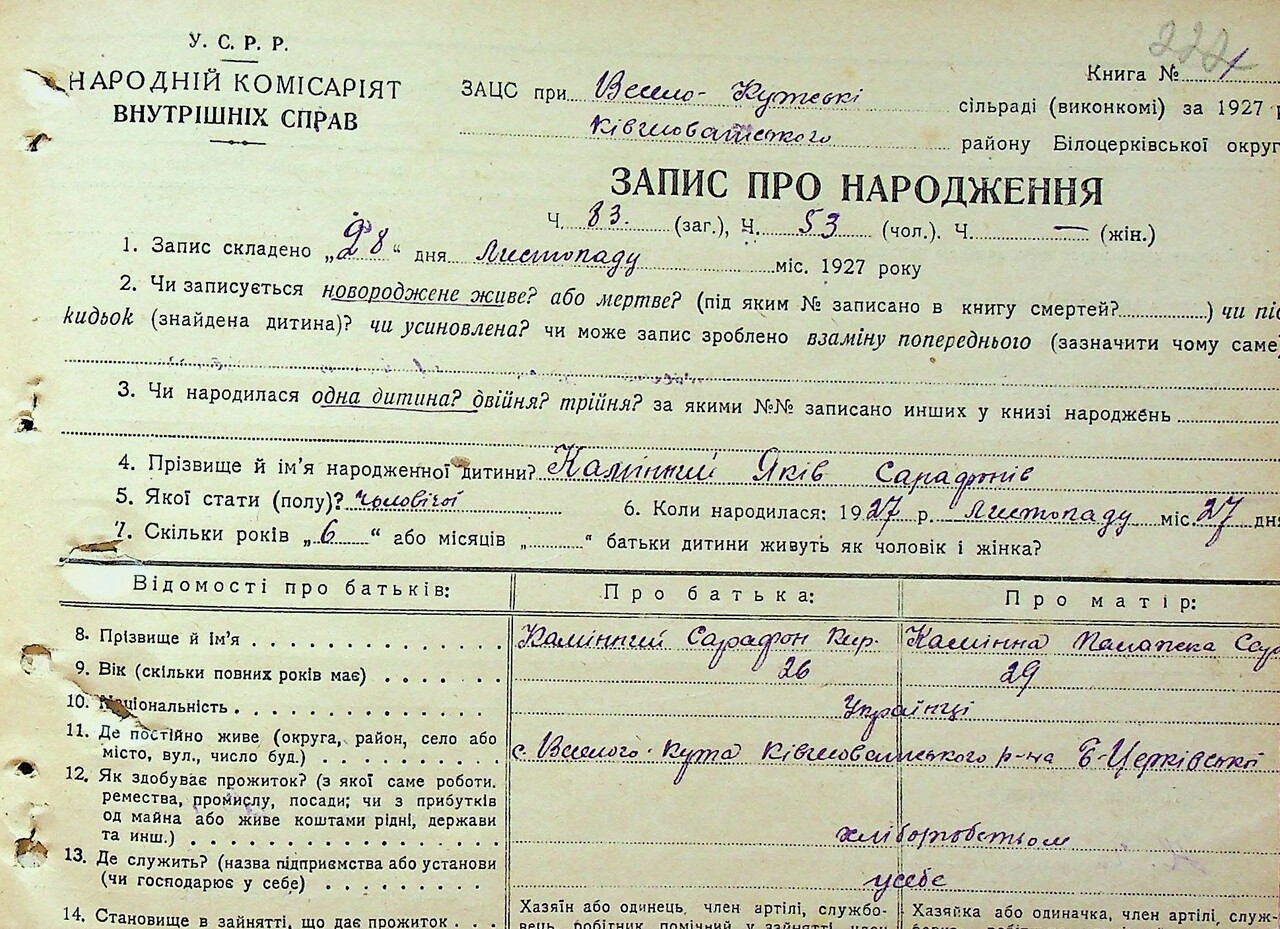 222
У. С. Р. Р.
НАРОДНІЙ КОМІСАРІЯТ
ВНУТРІШНІХ СПРАВ
Книга № 1
ЗАЦС при Весело-Кутській сільраді (виконкомі) за 1927 р
Ківшоватського району Білоцерківської округ
ЗАПИС ПРО НАРОДЖЕННЯ
Ч. 83. (заг.), Ч. 53 (чол.). Ч. — (жін.)
1. Запис складено „28“ дня Листопаду міс. 1927 року
2. Чи записується новороджене живе? або мертве? (під яким № записано в книгу смертей?) чи під
кидьок (знайдена дитина)? чи усиновлена? чи може запис зроблено взаміну попереднього (зазначити чому саме)
3. Чи народилася одна дитина? двійня? трійня? за якими №№ записано инших у книзі народжень
4. Прізвище й ім’я народженної дитини? Камінний Яків Сарафонів
5. Якої стати (полу)? чоловічої 6. Коли народилася: 1927 р. Листопаду міс. 27 дня
7. Скільки років „6“ або місяців „ “ батьки дитини живуть як чоловік і жінка?
Відомості про батьків: Про батька: Про матір:
8. Прізвище й ім’я Камінний Сарафон Кир. Камінна Палажка
9. Вік (скільки повних років має) 26 29
10. Національність Українці
11. Де постійно живе (округа, район, село або
місто, вул., число буд.) с. Веселого-Кута Ківшоватського р-на Б-Церківської
12. Як здобуває прожиток? (з якої саме роботи.
ремества, промислу, посади; чи з прибутків
од майна або живе коштами рідні, держави
та инш.) хліборобством
13. Де служить? (назва підприємства або установи
(чи господарює у себе) усебе
14. Становище в зайнятті, що дає прожиток
Хазяїн або одинець, член артілі, службо-
вець, робітник, помічний у зайнятті, член
Хазяйка або одиначка, член артілі, служ-